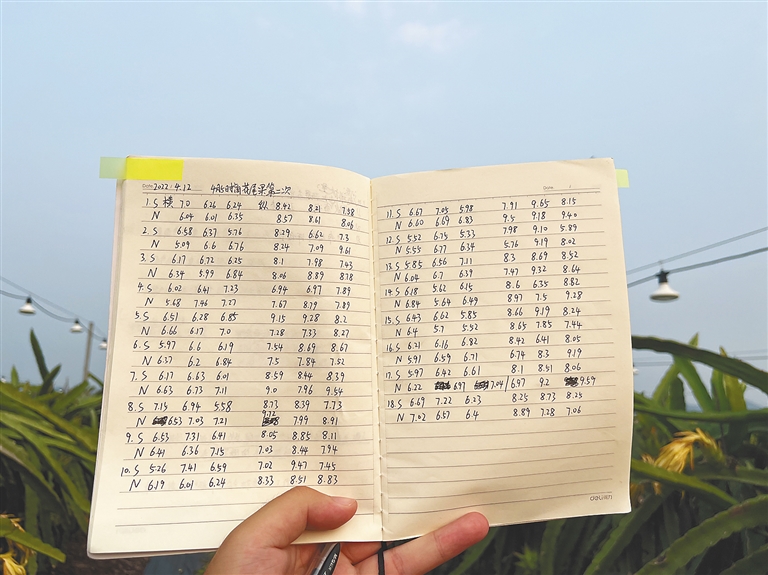 Date 2022.4.12 4小时 花尾果第二次
1. S 横 7.0 6.26 6.24 纵 8.42 8.21 7.58
N 6.04 6.01 6.35 8.57 8.61 8.06
2. S 6.58 6.37 5.76 8.29 6.62 7.3
N 5.09 6.6 6.76 8.24 7.09 9.61
3. S 6.17 6.72 6.25 8.1 7.98 7.43
N 6.34 5.99 6.84 8.06 8.89 8.78
4. S 6.02 6.41 7.23 6.94 6.97 7.89
N 5.68 7.46 7.27 7.67 8.79 7.89
5. S 6.51 6.28 6.85 9.15 9.28 8.2
N 6.66 6.17 7.0 7.28 7.33 8.27
6. S 5.97 6.6 6.19 7.54 8.69 8.67
N 6.37 6.2 6.84 7.5 7.84 7.52
7. S 6.17 6.63 6.01 8.59 8.44 8.39
N 6.63 6.73 7.11 9.0 7.96 9.54
8. S 7.15 6.94 5.58 8.73 8.39 7.73
N 6.53 7.03 7.21 9.12 7.99 8.91
9. S 6.53 7.31 6.41 8.05 8.85 8.11
N 6.41 6.36 7.15 7.03 8.44 7.94
10. S 5.26 7.41 6.59 7.02 9.47 7.45
N 6.19 6.01 6.24 8.33 8.51 8.83
Date
11. S 6.67 7.05 5.98 7.91 9.65 8.15
N 6.60 6.69 6.83 9.5 9.18 9.40
12. S 5.52 6.75 5.33 7.98 9.10 5.89
N 5.55 6.77 6.34 5.76 9.19 8.02
13. S 5.85 6.56 7.11 8.3 8.69 8.52
N 6.04 6.7 6.39 7.47 9.32 8.64
14. S 6.18 5.62 6.15 8.6 6.35 8.82
N 6.84 5.64 6.49 8.97 7.5 9.28
15. S 6.43 6.62 5.85 8.66 9.19 8.24
N 6.4 5.7 5.52 8.65 7.85 7.44
16. S 6.21 6.16 6.82 8.42 6.41 8.05
N 5.91 6.59 6.71 6.74 8.3 9.19
17. S 5.97 6.42 6.61 8.1 8.51 8.06
N 6.22 6.91 7.04 6.97 9.2 9.59
18. S 6.69 7.22 6.23 8.25 8.73 8.25
N 7.02 6.57 6.4 8.89 7.28 7.06
deli